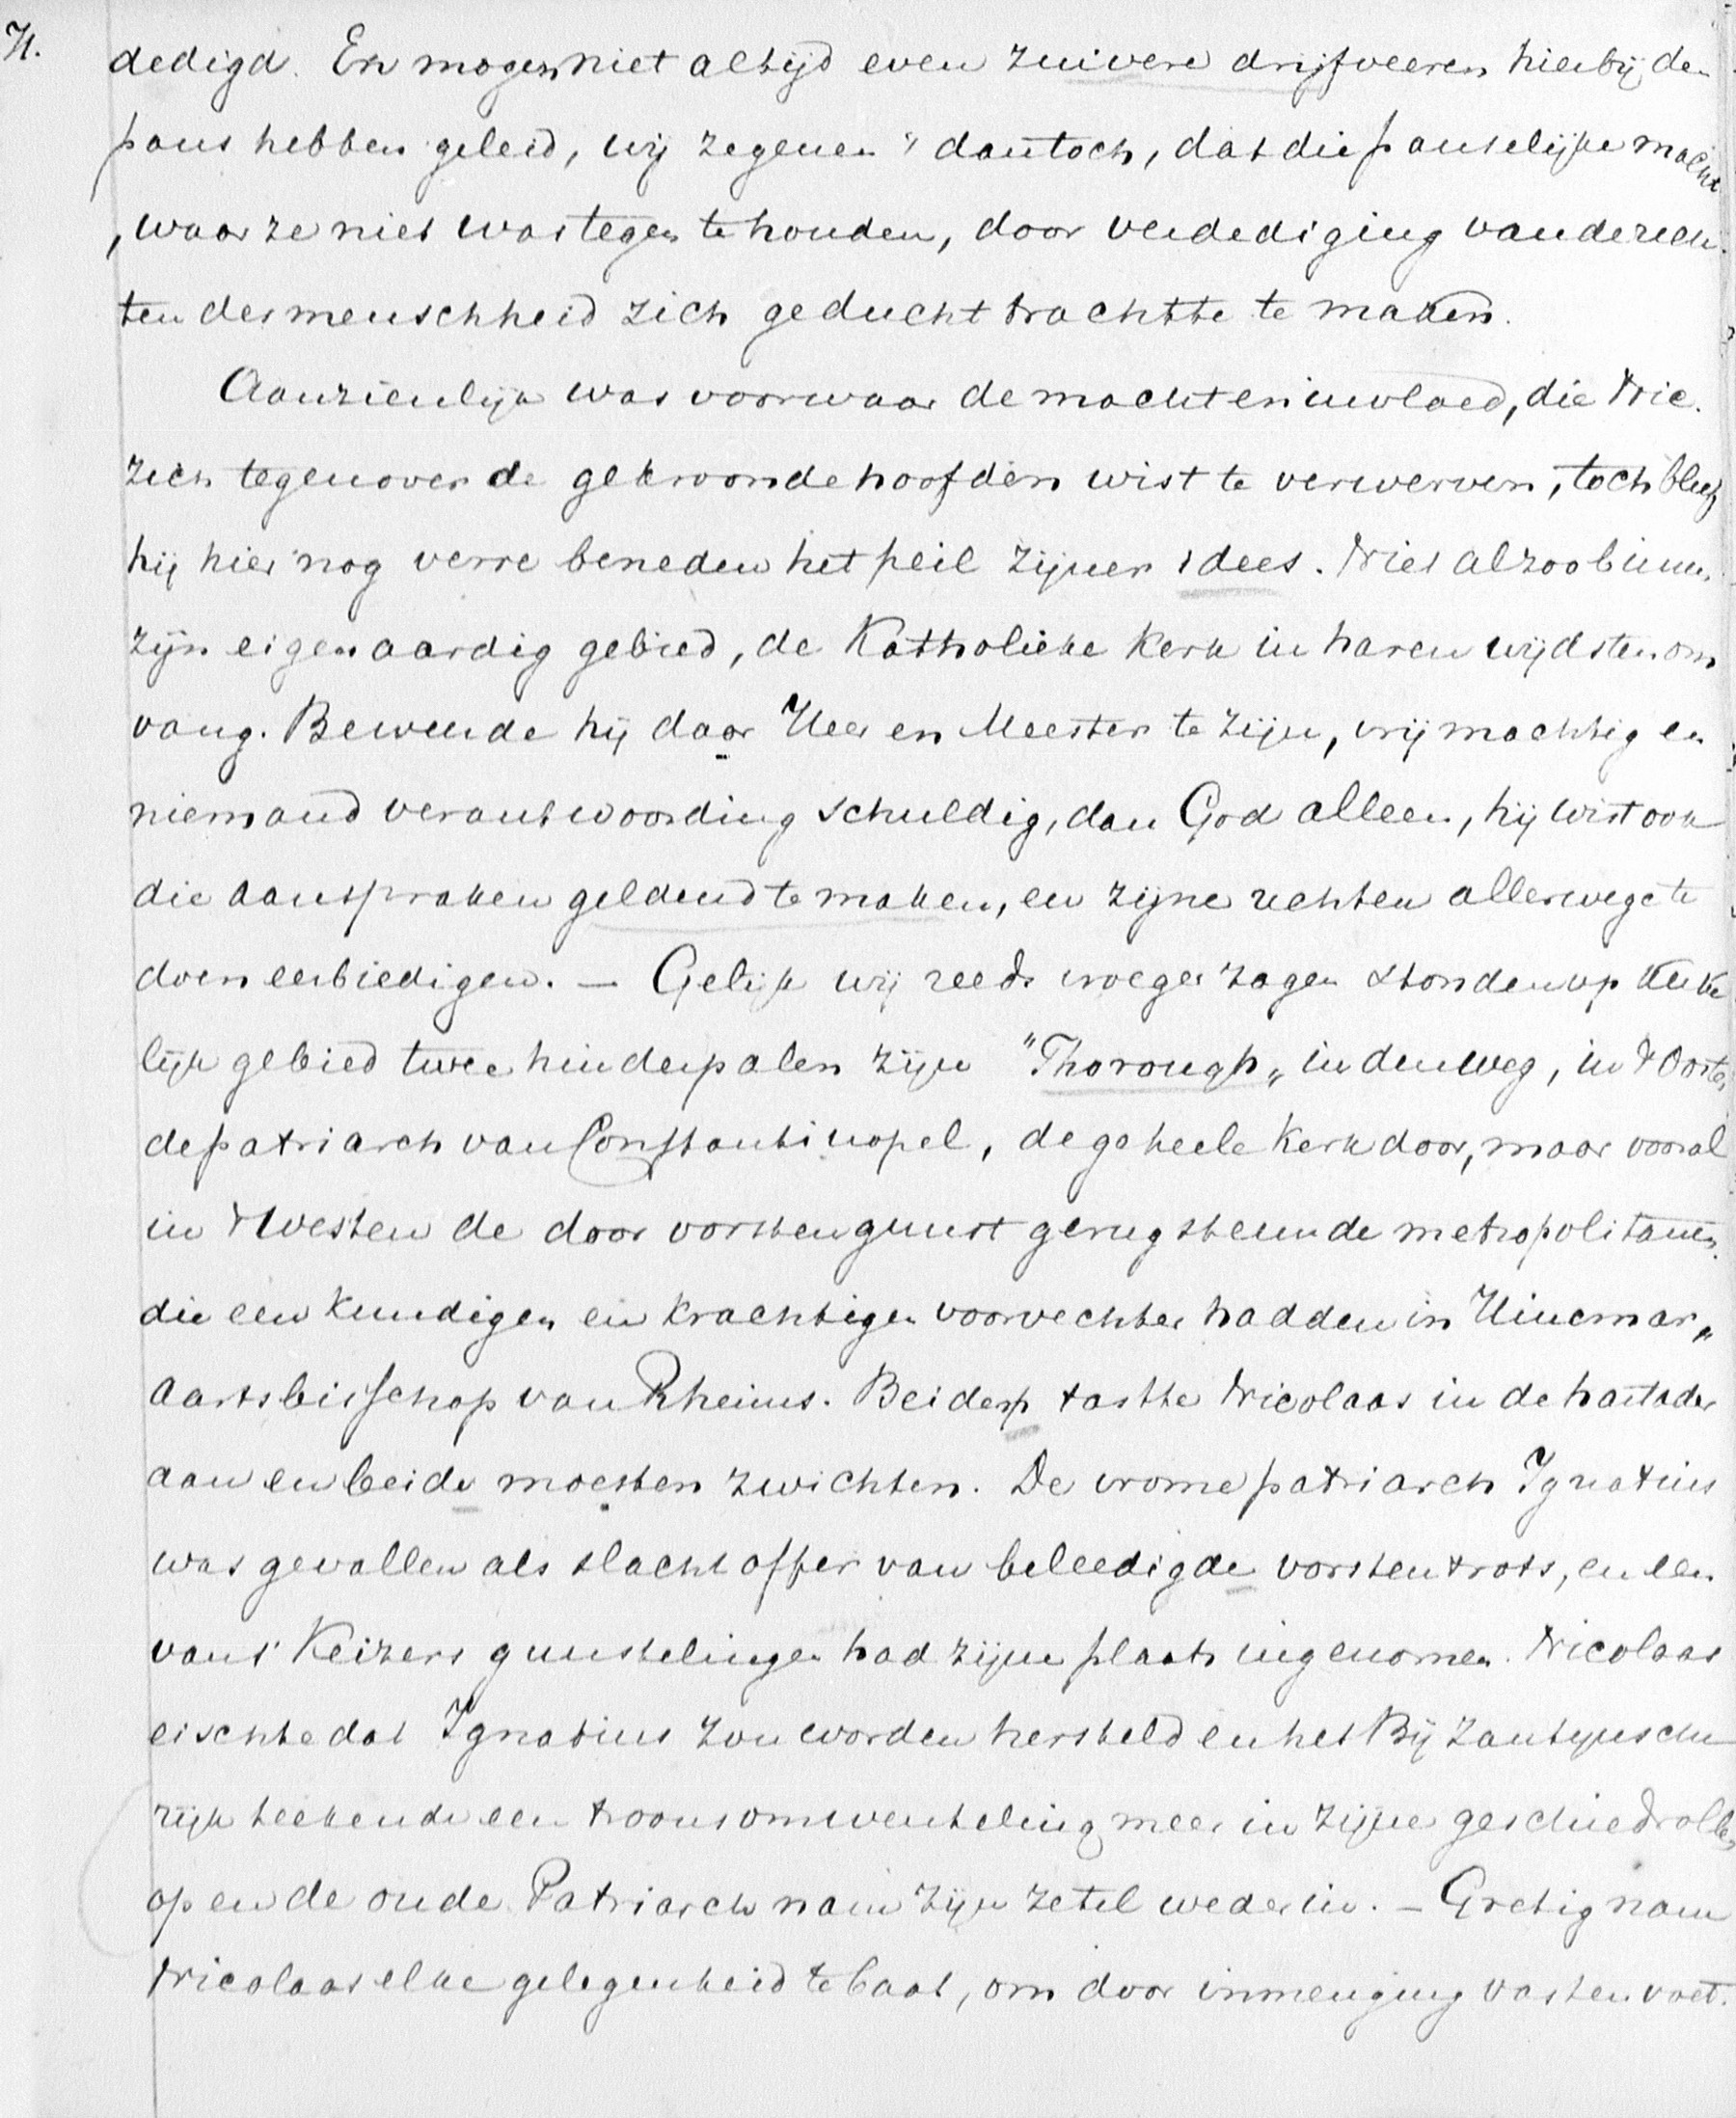 71.
dedigd. En mogen niet altijd even zuivere drijfveeren hierbij den
paus hebben geleid, wij zegenen 't dan toch, dat die pauselijke macht
, waar ze niet was tegen te houden, door verdediging van de rech-
ten der menschheid zich geducht trachtte te maken.
Aanzienlijk was voorwaar de macht en invloed, die Nic.
zich tegenover de gekroonde hoofden wist te verwerven, toch bleef
hij hier nog verre beneden het peil zijner idees. Niet alzoo binnen
zijn eigenaardig gebied, de Katholieke Kerk in haren wijdsten om
vang. Beweerde hij daar Heer en Meester te zijn, vrijmachtig en
niemand verantwoording schuldig, dan God alleen, hij wist ook
die aanspraken geldend te maken, en zijne rechten allerwege te
doen eerbiedigen. — Gelijk wij reeds vroeger zagen stonden op Kerke
lijk gebied twee hinderpalen zijn "Thorough" in den weg, in 't Oosten
de patriarch van Constantinopel, de geheele Kerk door, maar vooral
in 't Westen de door vorstengunst gerugsteunde metropolitanen.
die een kundigen en krachtigen voorvechter hadden in Hincmar,
aartsbisschop van Rheims. Beiden tastte Nicolaas in de hartader
aan en beide moesten zwichten. De vrome patriarch Ignatius
was gevallen als slachtoffer van beleedigde vorstentrots, en een
van 's Keizers gunstelingen had zijn plaats ingenomen. Nicolaas
eischte dat Ignatius zou worden hersteld en het Bijzantijnsche
rijk teekende een troonsomwenteling meer in zijne geschiedrollen
op en de oude Patriarch nam zijn zetel weder in. — Gretig nam
Nicolaas elke gelegenheid te baat, om door inmenging vasten voet.